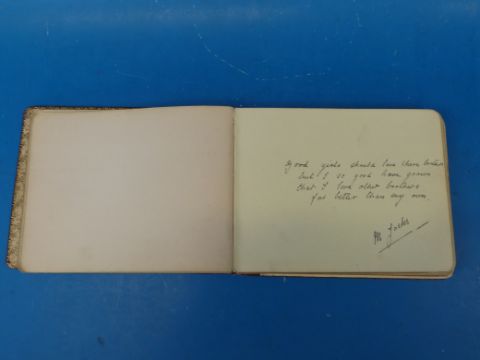 Good girls should love there brothers
but I so good have grown
that I love other brothers
far better than my own